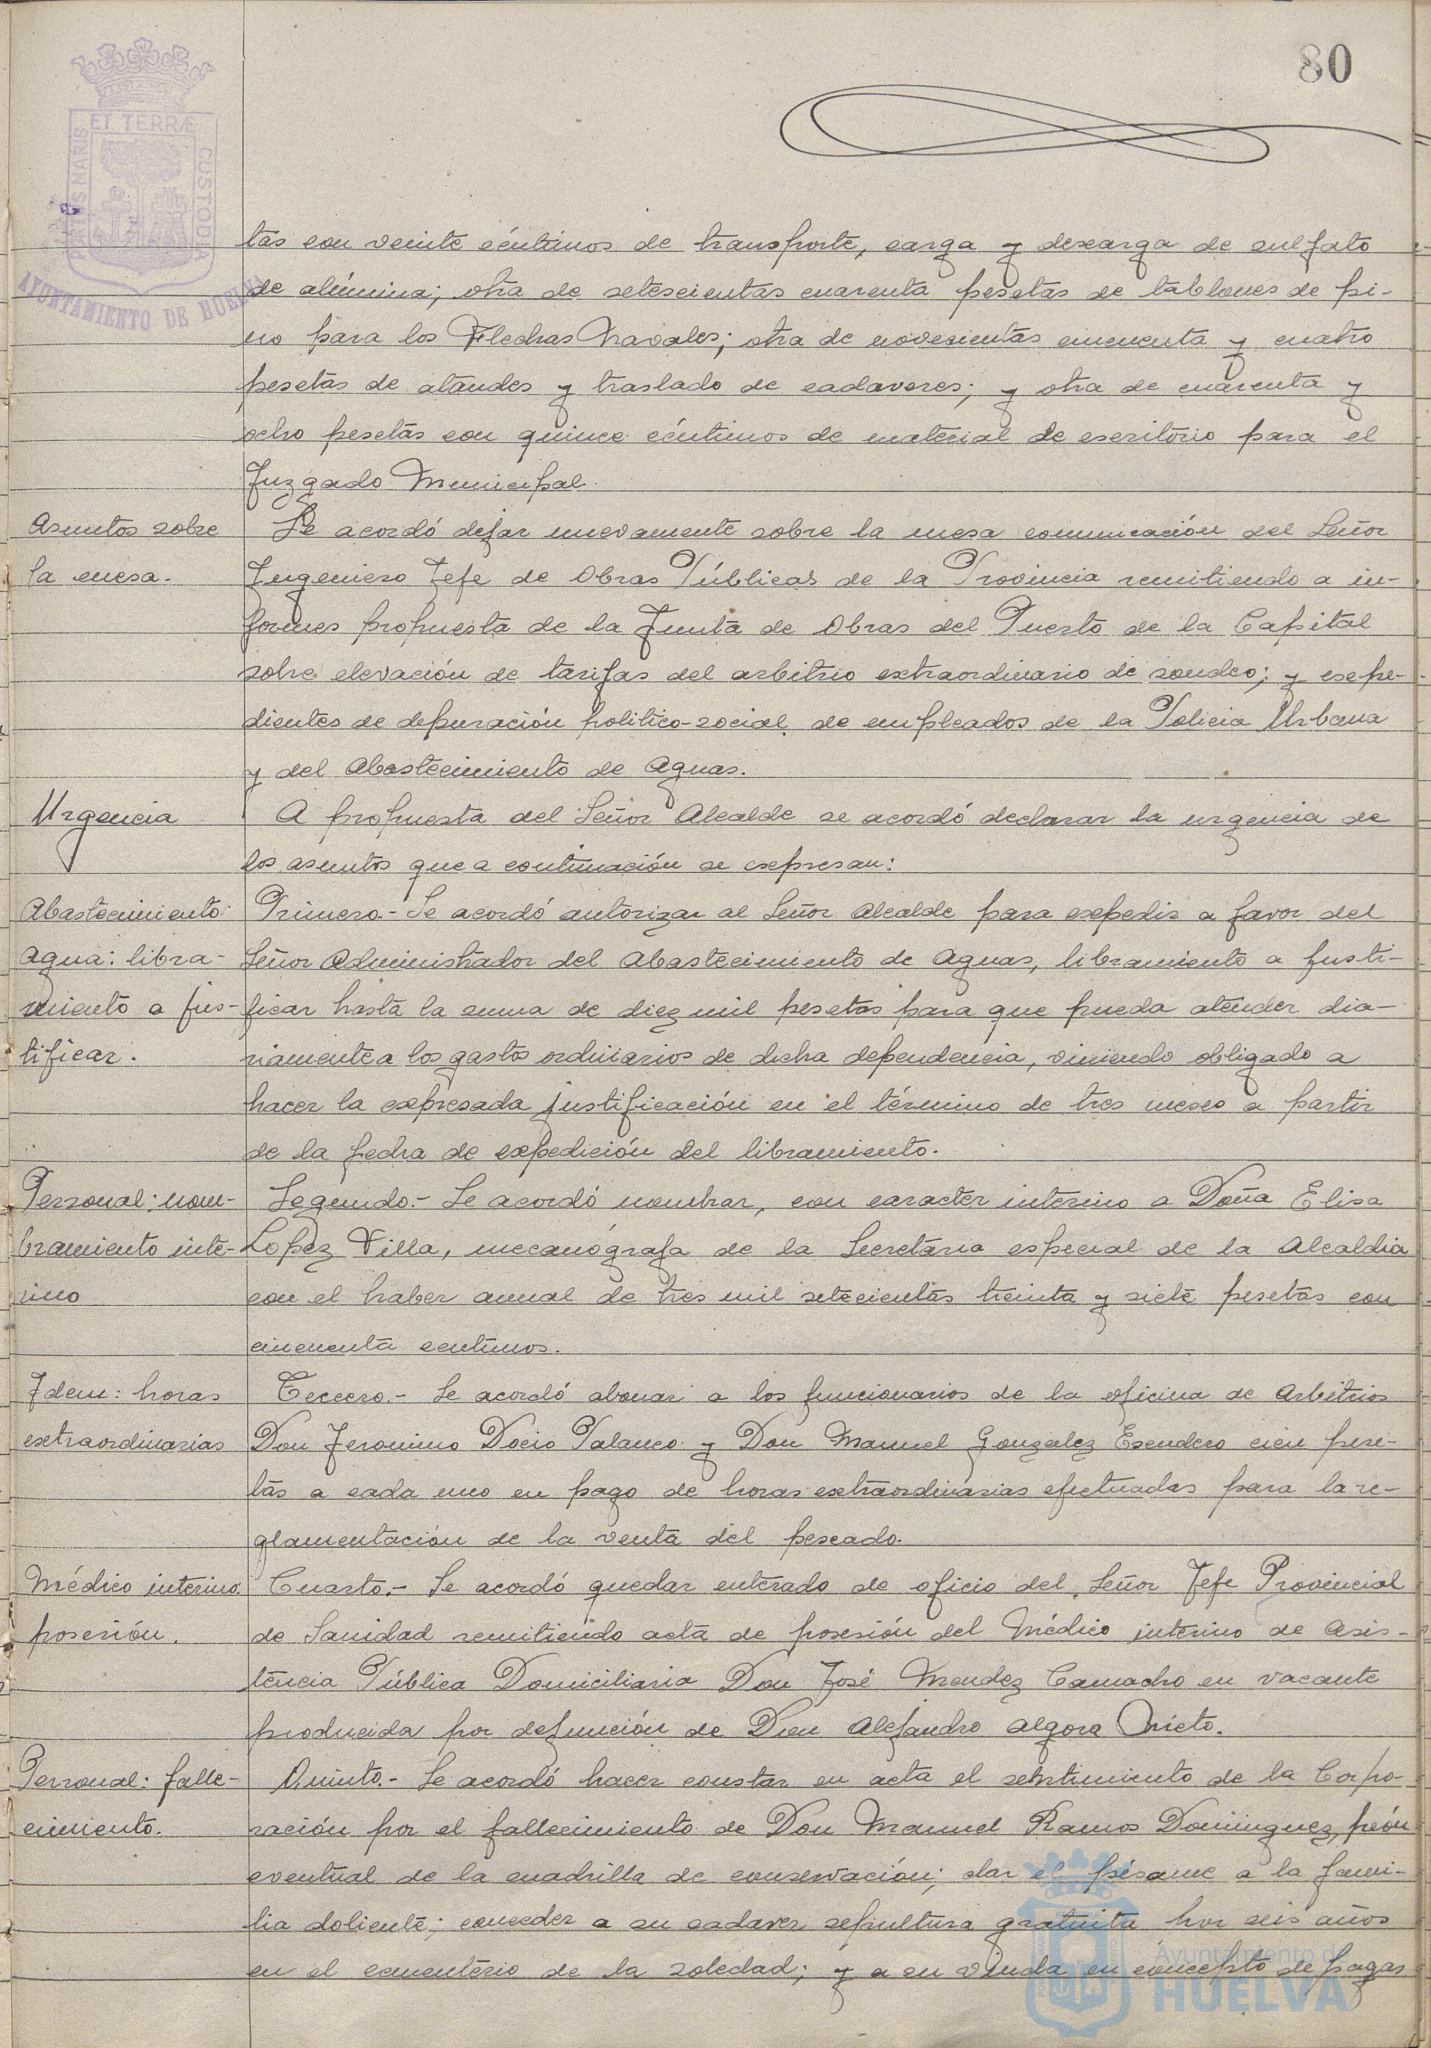 80
PORTUS MARIS
ET TERRÆ
CUSTODIA
AYUNTAMIENTO DE HUELVA
tas con veinte céntimos de transporte, carga y descarga de sulfato
de alúmina; otra de setescientas cuarenta pesetas de tablones de pi-
no para los Flechas Navales; otra de novecientas cincuenta y cuatro
pesetas de ataudes y traslado de cadaveres; y otra de cuarenta y
ocho pesetas con quince céntimos de material de escritorio para el
Juzgado Municipal.
Asuntos sobre
la mesa.
Se acordó dejar nuevamente sobre la mesa comunicación del Señor
Ingeniero Jefe de Obras Públicas de la Provincia remitiendo a in-
formes propuesta de la Junta de Obras del Puerto de la Capital
sobre elevación de tarifas del arbitrio extraordinario de sondeo; y expe-
dientes de depuración politico-social de empleados de la Policia Urbana
y del Abastecimiento de Aguas.
Urgencia
A propuesta del Señor Alcalde se acordó declarar la urgencia de
los asuntos que a continuación se expresan:
Abastecimiento
Agua: libra-
miento a jus-
tificar.
Primero.- Se acordó autorizar al Señor Alcalde para expedir a favor del
Señor Administrador del Abastecimiento de Aguas, libramiento a justi-
ficar hasta la suma de diez mil pesetas para que pueda atender dia-
riamente a los gastos ordinarios de dicha dependencia, viniendo obligado a
hacer la expresada justificación en el término de tres meses a partir
de la fecha de expedición del libramiento.
Personal: nom-
bramiento inte-
rino
Segundo.- Se acordó nombrar, con caracter interino a Doña Elisa
Lopez Villa, mecanógrafa de la Secretaria especial de la Alcaldia
con el haber anual de tres mil setecientas treinta y siete pesetas con
cincuenta centimos.
Idem: horas
extraordinarias
Tercero.- Se acordó abonar a los funcionarios de la oficina de Arbitrios
Don Jeronimo Docio Palanco y Don Manuel Gonzalez Escudero cien pese-
tas a cada uno en pago de horas extraordinarias efectuadas para la re-
glamentación de la venta del pescado.
Médico interino
posesión.
Cuarto.- Se acordó quedar enterado de oficio del Señor Jefe Provincial
de Sanidad remitiendo acta de posesión del Médico interino de Asis-
tencia Pública Domiciliaria Don José Mendez Camacho en vacante
producida por defunción de Don Alejandro Algora Nieto.
Personal: falle-
cimiento.
Quinto.- Se acordó hacer constar en acta el sentimiento de la Corpo-
ración por el fallecimiento de Don Manuel Ramos Dominguez, peón
eventual de la cuadrilla de conservación; dar el pésame a la fami-
lia doliente; conceder a su cadaver sepultura gratuita por seis años
en el cementerio de la soledad; y a su viuda en concepto de pagas
Ayuntamiento de
HUELVA